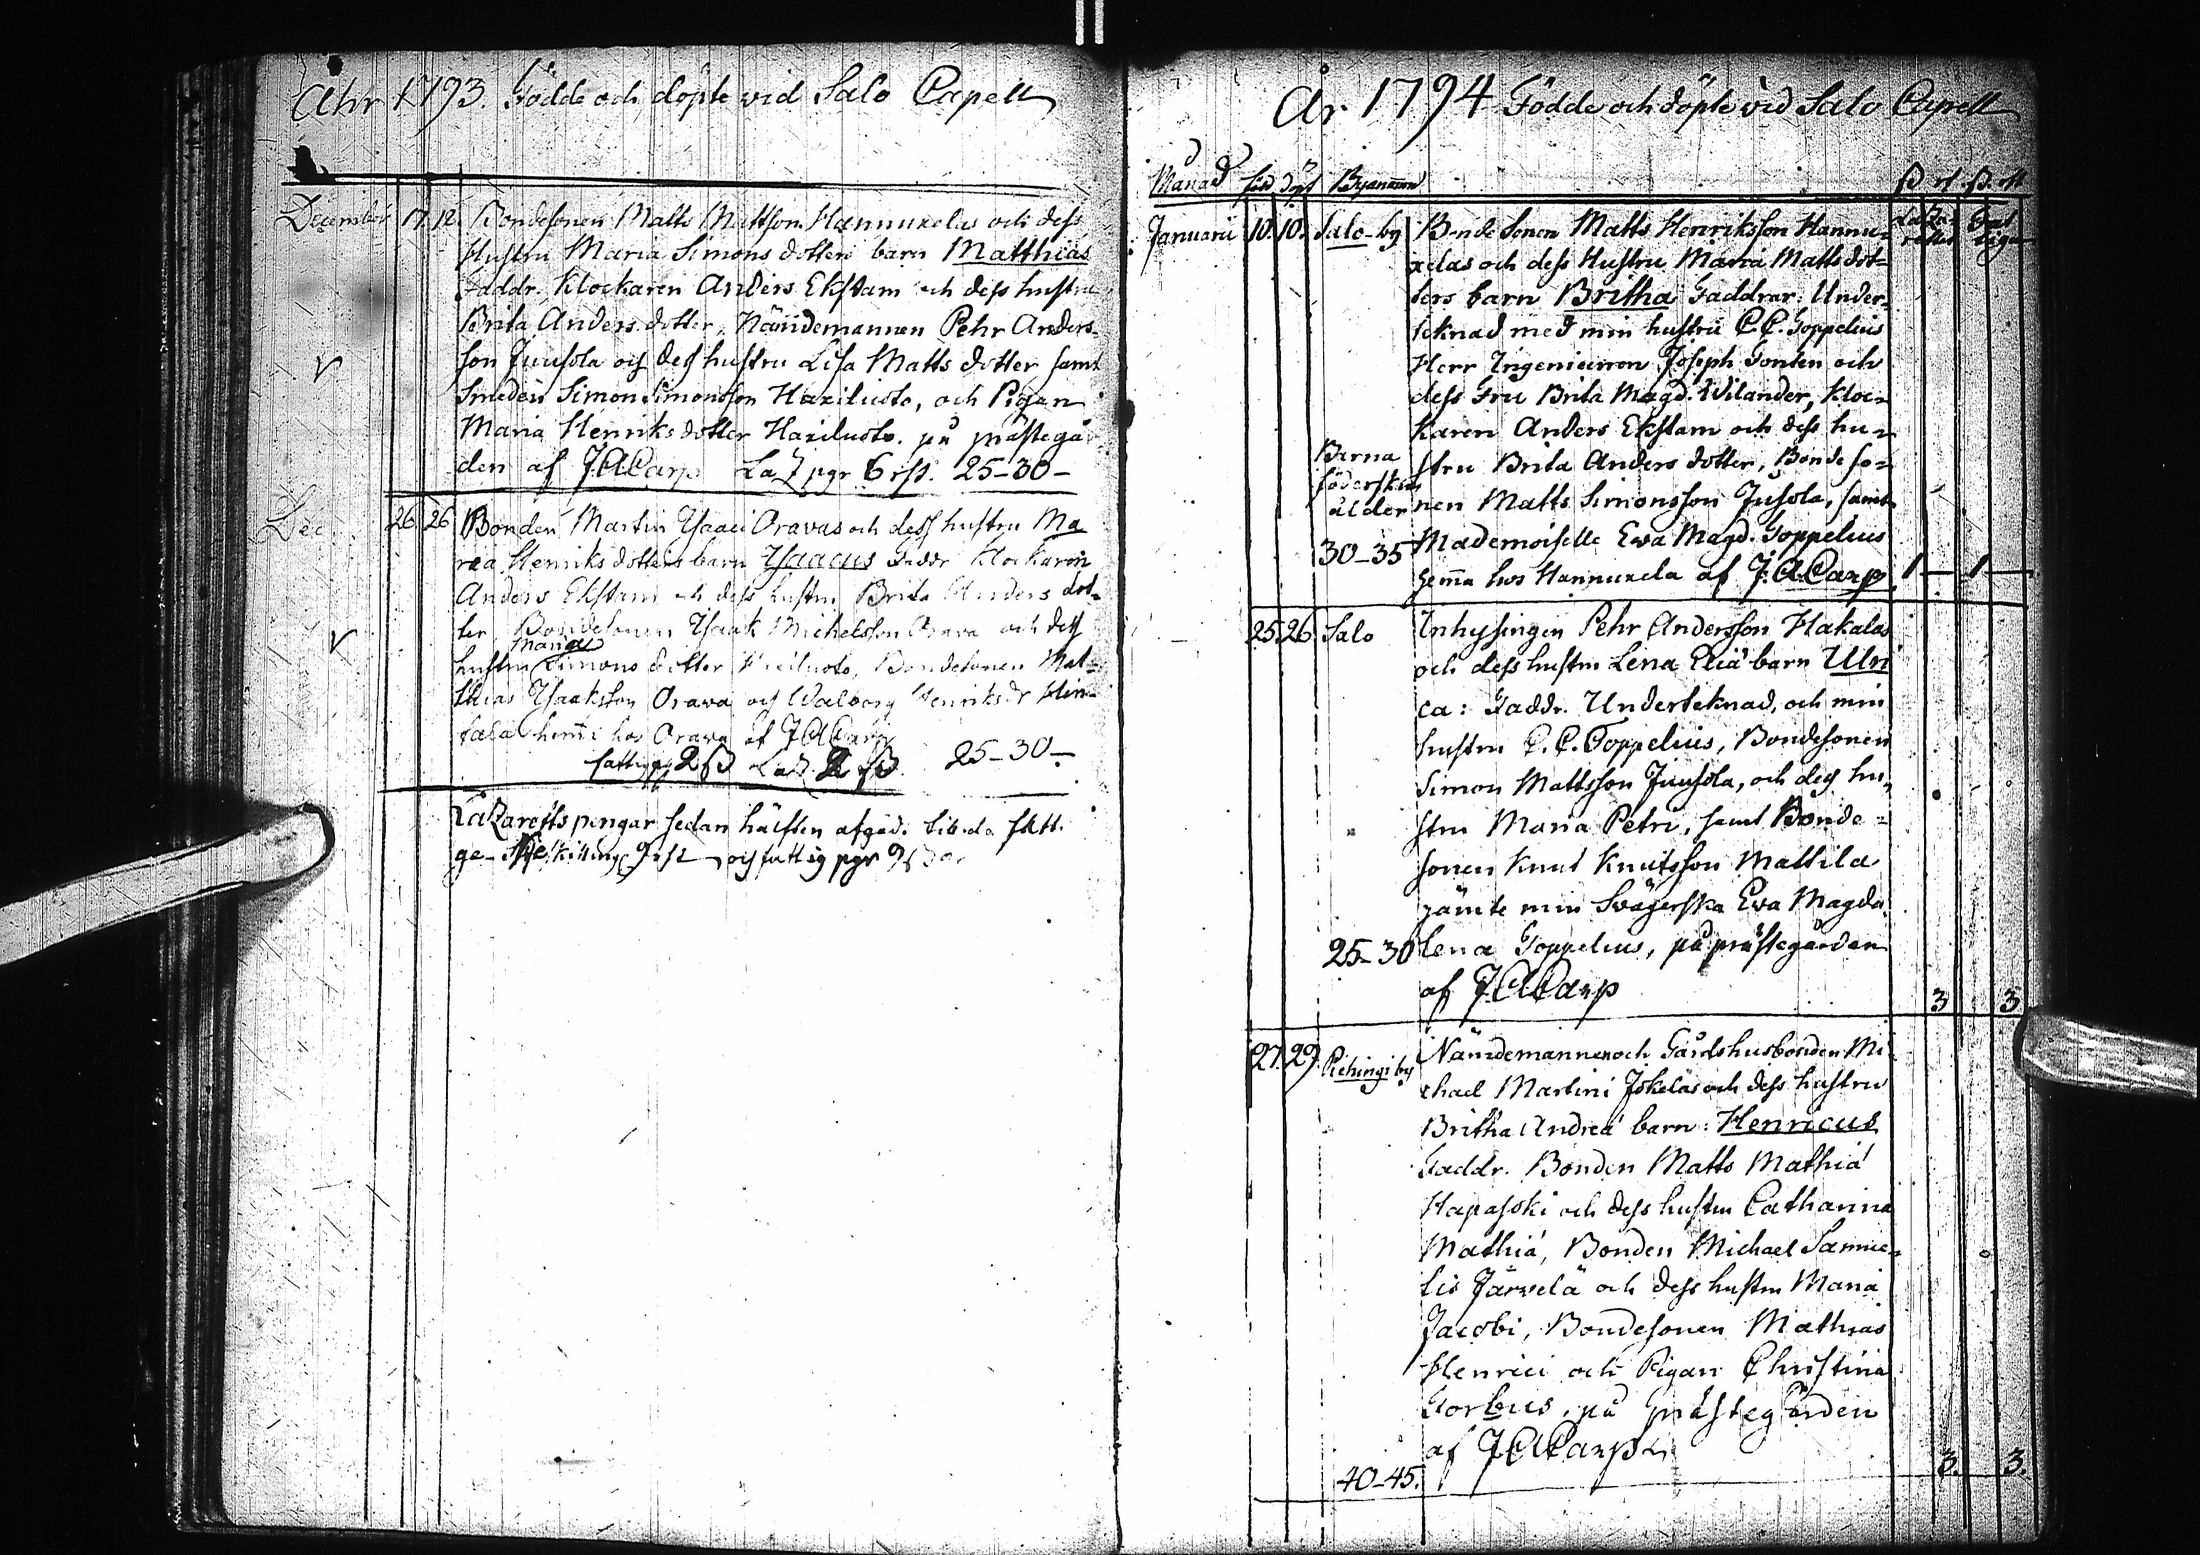 Ahr 1793. Födde och döpte vid Salo Capell
December 17. 18. Bondesonen Matts Mattsson Hannuxelas och dess
Hustru Maria Simons dotters barn Matthias
Faddr. Klockaren Anders Ekstam och dess hustru
Brita Anders dotter, Nämdemannen Pehr Anders-
son Juusola och dess hustru Lisa Matts dotter samt
Smeden Simon Simonsson Haxiluoto, och Pigan
Maria Henriks dotter Haxiluoto. på prästegår
den af J.A.Carp Laz pgr 6 rst. 25-30-
Dec. 26. 26 Bonden Martin Isaaci Oravas och dess hustru Ma
ria Henriks dotters barn Isaacus Faddr Klockaren
Anders Ekstam och dess hustru Brita Anders dot-
ter, Bondesonen Isaak Michelsson Orava och dess
Maria
hustru Simons dotter Bondesonen Mat-
thias Isaaksson Orava och Walborg Henriksdr
hemma hos Orava af J.A.Carp
fattig pg 2 ß Laz. 2 ß. 25-30-
Lazaretts pengar sedan hälften afgår
och fattig pgr
År 1794 Födde och döpte vid Salo Capell
Månad föd döpt Bynamn ß rst. ß. rst
Januarii 10. 10. Salo-by Bonde Sonen Matts Henriksson Hannu-
xelas och dess Hustru Maria Matts dot-
ters barn Britha Faddrar: Under-
teknad med min hustru C.C. Toppelius
Herr Ingenieuren Joseph Tonten och
dess Fru Brita Magd. Wilander, Kloc-
karen Anders Ekstam och dess hu-
Barna stru Brita Anders dotter, Bonde so-
föderskans
ålder nen Matts Simonsson Jusola, samt
30-35 Mademoiselle Ewa Magd. Toppelius
hema hos Hannuxela af J.A.Carp. 1- 1-
25. 26. Salo Inhysingen Pehr Andersson Hakalas
och dess hustru Lena Eliæ barn Ulri
ca: Faddr. Underteknad, och min
hustru C.C. Toppelius, Bondesonen
Simon Mattsson Juusola, och dess hu-
stru Maria Petri, samt Bonde-
sonen Knut Knutsson Mattila
jämte min Svägerska Ewa Magda
25-30 lena Toppelius, på prästegården
af J.A.Carp 3 3
27. 29. Piehingi by Nämdemannen och Gårdshusbonden Mi
chael Martini Jskelas och dess hustru
Britha Andreæ barn: Henricus
Faddr. Bonden Matts Mathiæ
Hapasski och dess hustru Catharina
Mathiæ, Bonden Michael Samue-
lis Järvelä och dess hustru Maria
Jacobi, Bondesonen Mathias
Henrici och Pigan Christina
Forbus, på prästegården
af J.A.Carp
40-45. 3. 3.